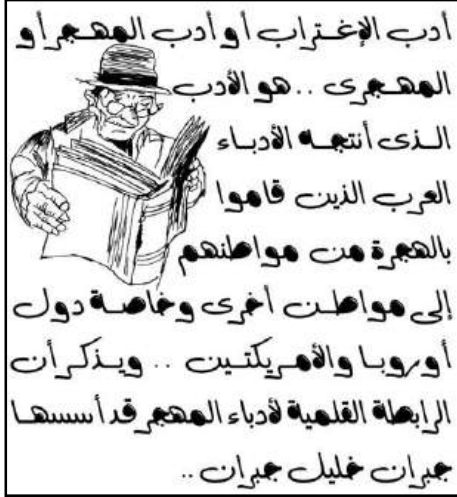 أدب الإغتراب أو أدب المهجر أو
المهجرى .. هو الأدب
الذى أنتجه الأدباء
العرب الذين قاموا
بالهجرة من مواطنهم
إلى مواطن أخرى وخاصة دول
أوروبا والأمريكتين .. ويذكر أن
الرابطة القلمية لأدباء المهجر قد أسسها
جبران خليل جبران ..